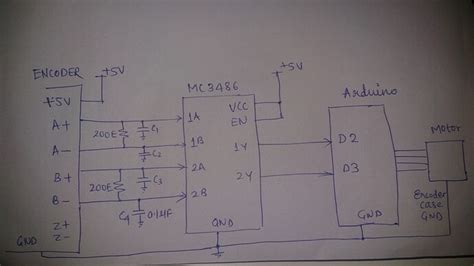 ENCODER
+5V
+5V
A+
A-
B+
B-
Z+
Z-
GND
200E
C1
C2
200E
C3
C4
0.1µF
MC3486
1A
1B
2A
2B
VCC
EN
1Y
2Y
GND
+5V
Arduino
D2
D3
GND
Motor
Encoder
case
GND